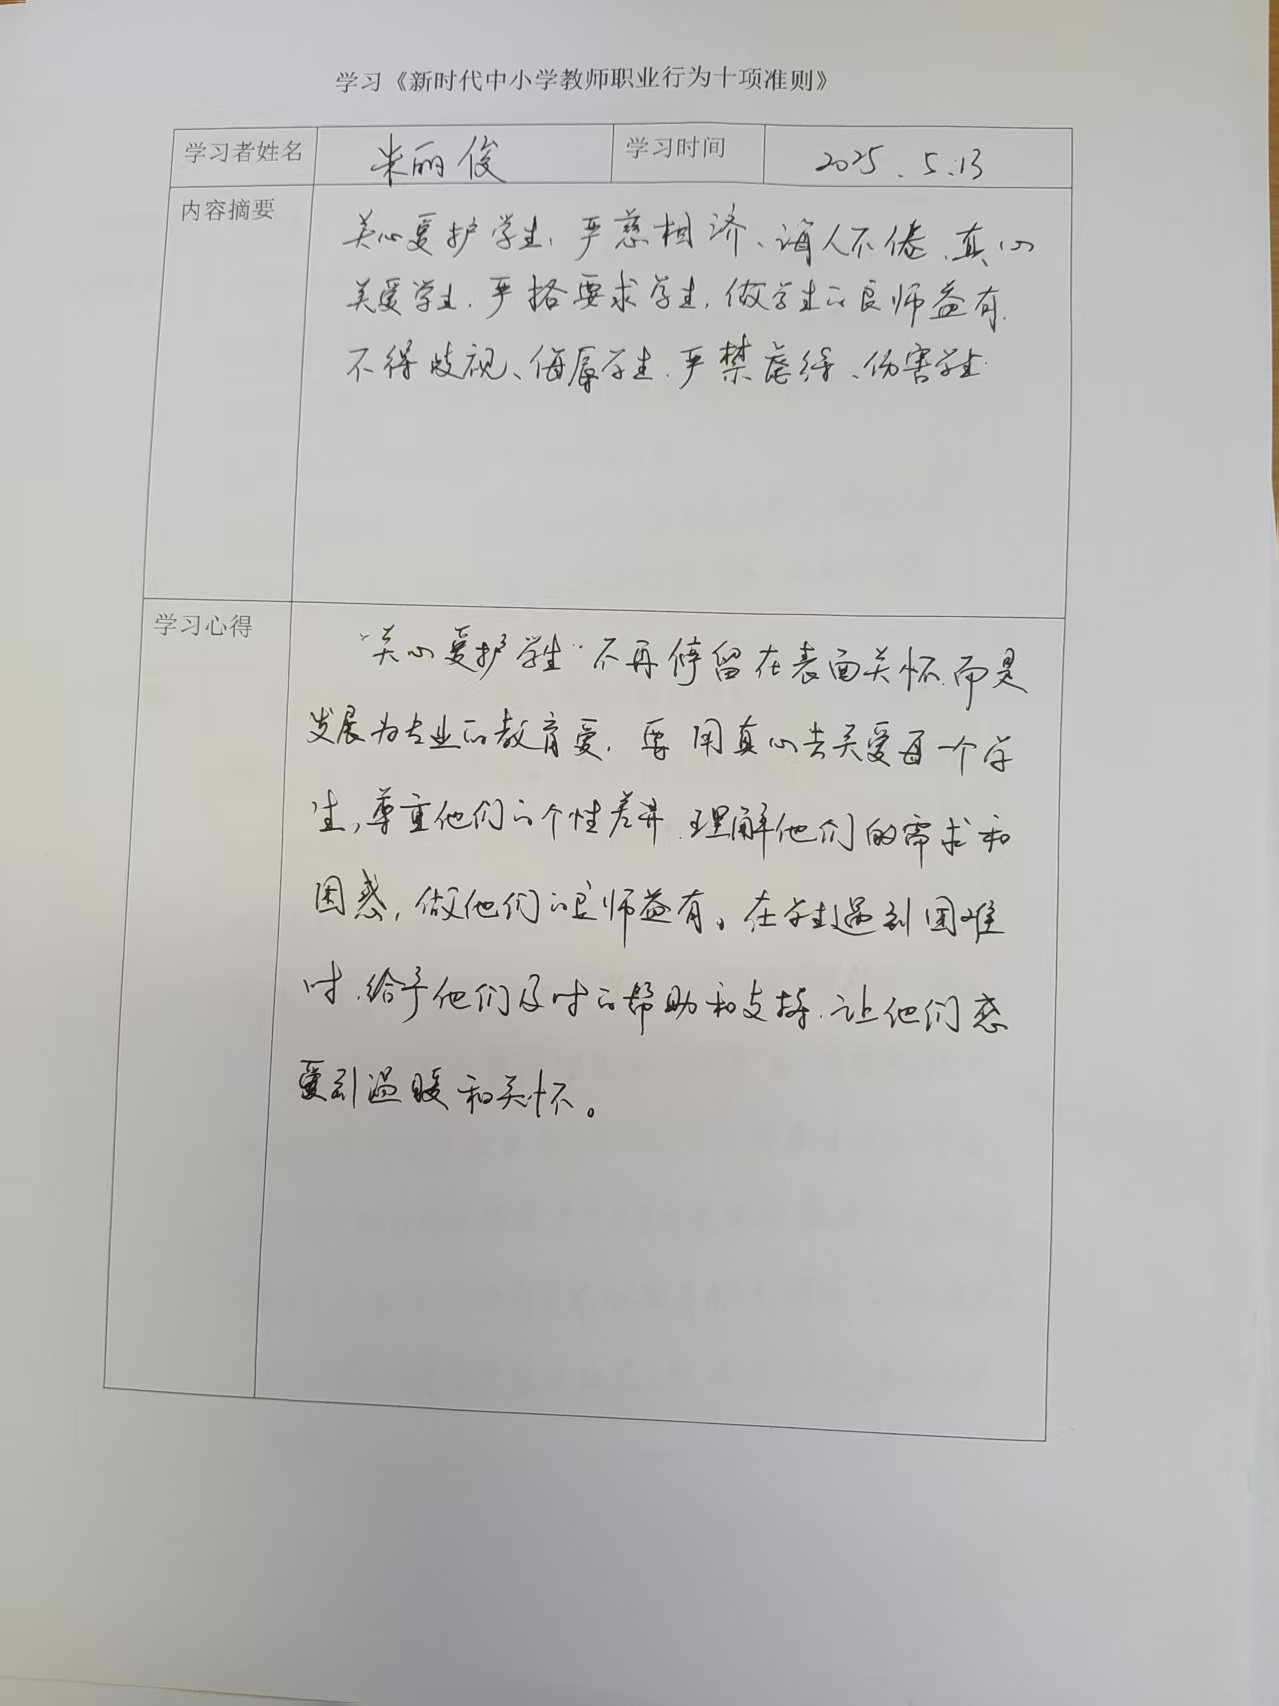 学习《新时代中小学教师职业行为十项准则》
学习者姓名 米丽俊 学习时间 2025.5.13
内容摘要
关心爱护学生，严慈相济、诲人不倦、真心
关爱学生，严格要求学生，做学生的良师益有，
不得歧视、侮辱学生，严禁虐待、伤害学生
学习心得
“关心爱护学生”不再停留在表面关怀，而是
发展为专业的教育爱，要用真心去关爱每一个学
生，尊重他们的个性差异，理解他们的需求和
困惑，做他们的良师益有。在学生遇到困难
时，给予他们及时的帮助和支持，让他们感
受到温暖和关怀。